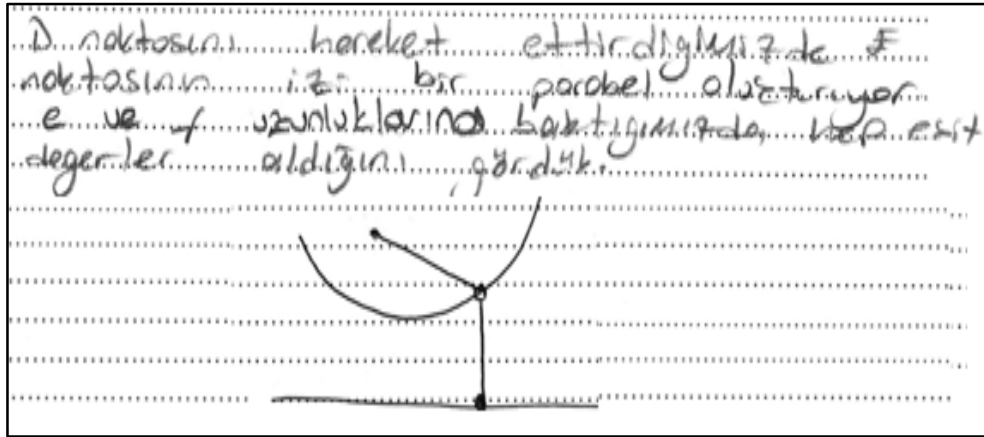 D noktasını hareket ettirdiğimizde F
noktasının izi bir parabel oluşturuyor
e ve f uzunluklarına baktığımızda, hep eşit
değerler aldığını gördük.